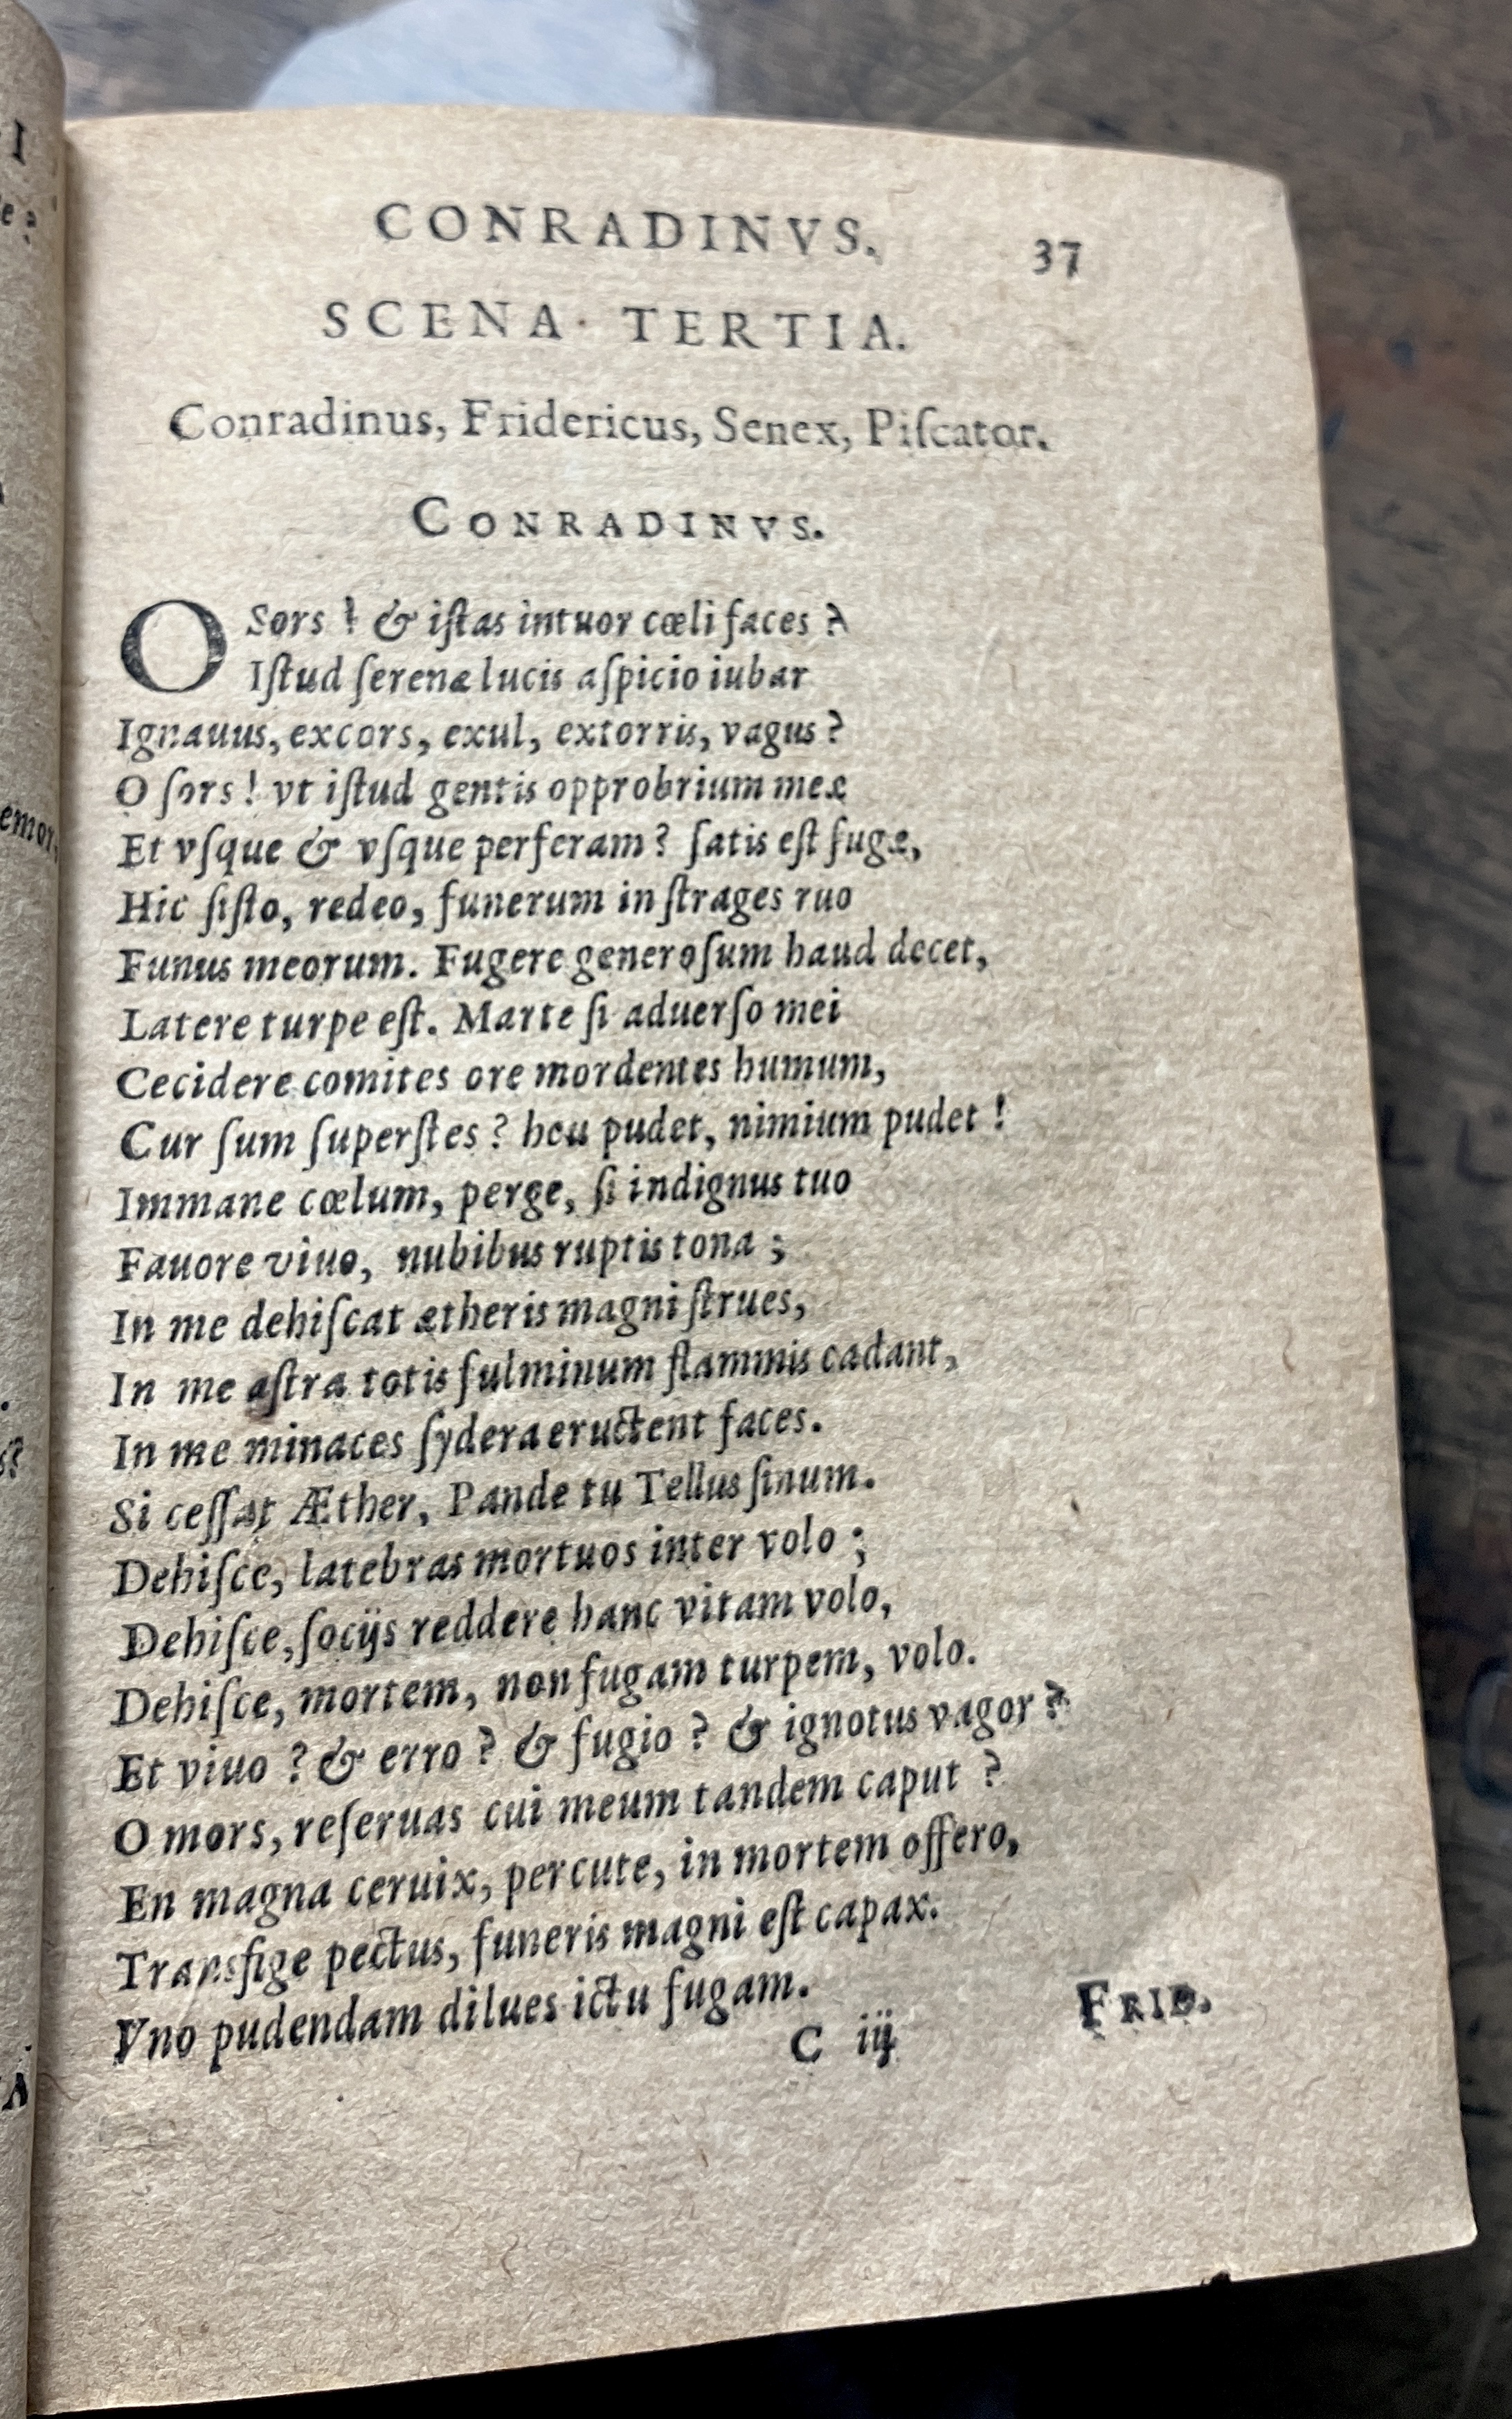 CONRADINVS. 37
SCENA TERTIA.
Conradinus, Fridericus, Senex, Piſcator.
CONRADINVS.
O Sors ! & iſtas intuor cœli faces ?
Iſtud ſerenæ lucis aſpicio iubar
Ignauus, excors, exul, extorris, vagus ?
O ſors ! vt iſtud gentis opprobrium meæ
Et vſque & vſque perferam ? ſatis eſt fugæ,
Hic ſiſto, redeo, funerum in ſtrages ruo
Funus meorum. Fugere generoſum haud decet,
Latere turpe eſt. Marte ſi aduerſo mei
Cecidere comites ore mordentes humum,
Cur ſum ſuperſtes ? heu pudet, nimium pudet !
Immane cœlum, perge, ſi indignus tuo
Fauore viuo, nubibus ruptis tona ;
In me dehiſcat ætheris magni ſtrues,
In me aſtra totis fulminum flammis cadant,
In me minaces ſydera eructent faces.
Si ceſſat Æther, Pande tu Tellus ſinum.
Dehiſce, latebras mortuos inter volo ;
Dehiſce, ſocijs reddere hanc vitam volo,
Dehiſce, mortem, non fugam turpem, volo.
Et viuo ? & erro ? & fugio ? & ignotus vagor ?
O mors, reſeruas cui meum tandem caput ?
En magna ceruix, percute, in mortem offero,
Transfige pectus, funeris magni eſt capax.
Vno pudendam dilues ictu fugam.
C iij FRID.